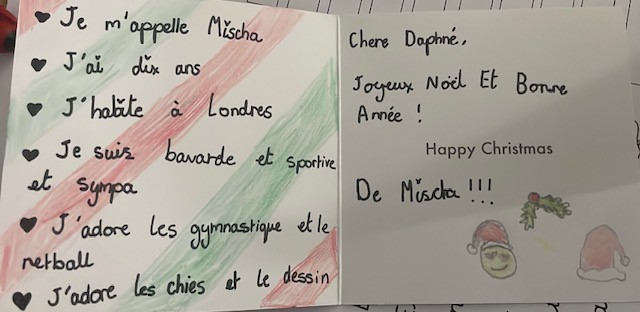 Je m'appelle Mischa
J'ai dix ans
J'habite à Londres
Je suis bavarde et sportive
et sympa
J'adore les gymnastique et le
netball
J'adore les chies et le dessin
Chere Daphné,
Joyeux Noël Et Bonne
Année !
Happy Christmas
De Mischa !!!